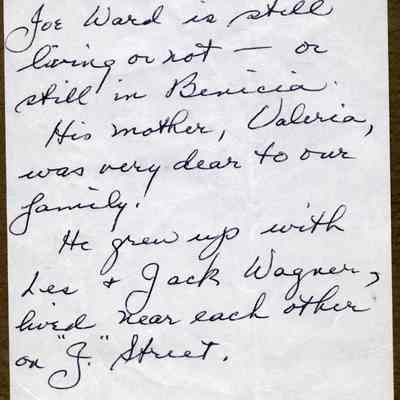 Joe Ward is still
living or not — or
still in Benicia.
His mother, Valeria,
was very dear to our
family.
He grew up with
Les + Jack Wagner,
lived near each other
on "J." Street.